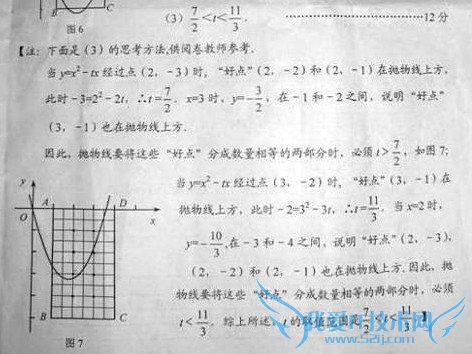 B C
图6
(3) 7/2<t<11/3. ……………………12分
【注:下面是(3)的思考方法,供阅卷教师参考.
当 y=x²-tx 经过点(2,-3)时,“好点”(2,-2)和(2,-1)在抛物线上方,
此时-3=2²-2t, ∴t=7/2. x=3时, y=-3/2, 在-1和-2之间,说明“好点”
(3,-1)也在抛物线上方.
因此,抛物线要将这些“好点”分成数量相等的两部分时,必须 t>7/2, 如图7;
当 y=x²-tx 经过点(3,-2)时,“好点”(3,-1)在
抛物线上方,此时-2=3²-3t, ∴t=11/3. 当x=2时,
y=-10/3, 在-3和-4之间,说明“好点”(2,-3),
(2,-2)和(2,-1)也在抛物线上方.因此,抛
物线要将这些“好点”分成数量相等的两部分时,必须
t<11/3. 综上所述, t的取值范围是 7/2<t<11/3.】
y
O A D x
B C
图7
我爱开技术网
www.52ij.com